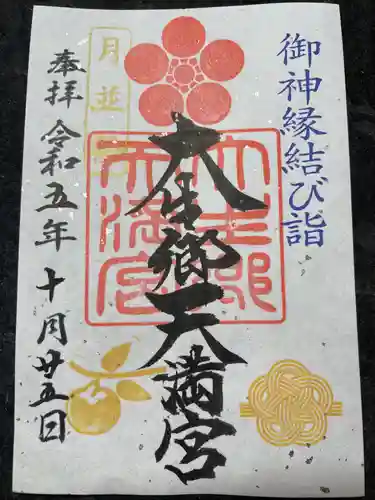 御神縁結び詣
大生郷天満宮
大生郷天満宮
月並
奉拝
令和五年十月廿五日